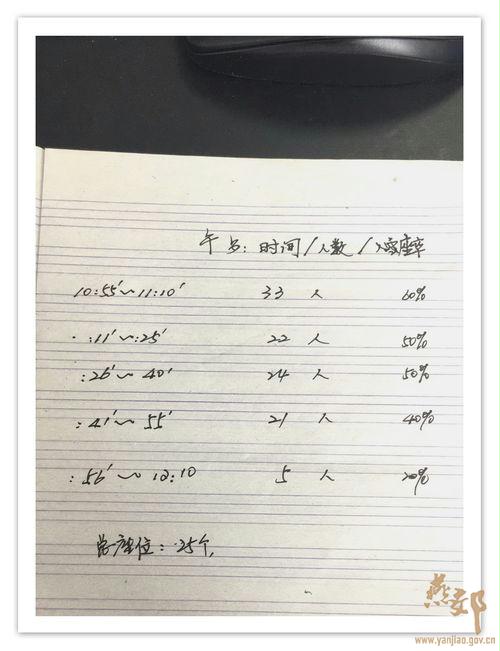 午市: 时间/人数/入客座率
10:55'~11:10' 33 人 60%
:11'~:25' 22 人 50%
:26'~40' 24 人 50%
:41'~55' 21 人 40%
:56'~12:10 5 人 20%
总座位: 25个,
燕郊
www.yanjiao.gov.cn